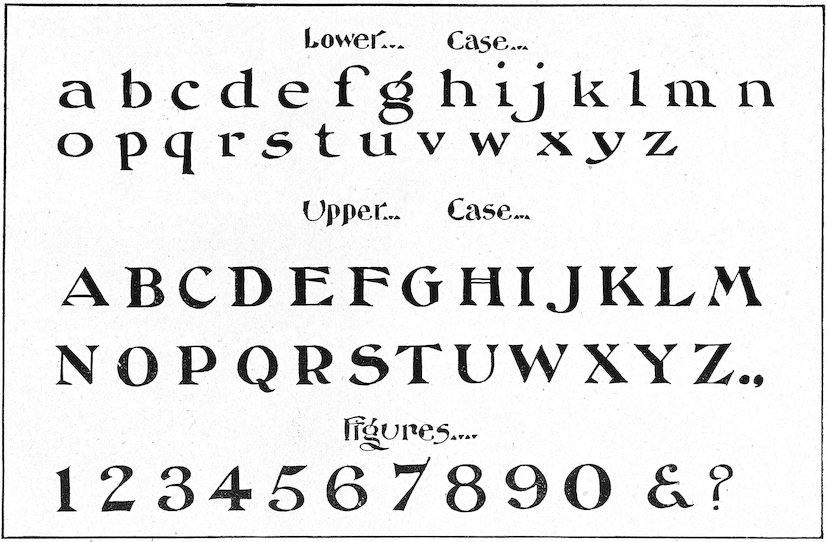 Lower... Case...
a b c d e f g h i j k l m n
o p q r s t u v w x y z
Upper... Case...
A B C D E F G H I J K L M
N O P Q R S T U V W X Y Z . ,
Figures....
1 2 3 4 5 6 7 8 9 0 & ?